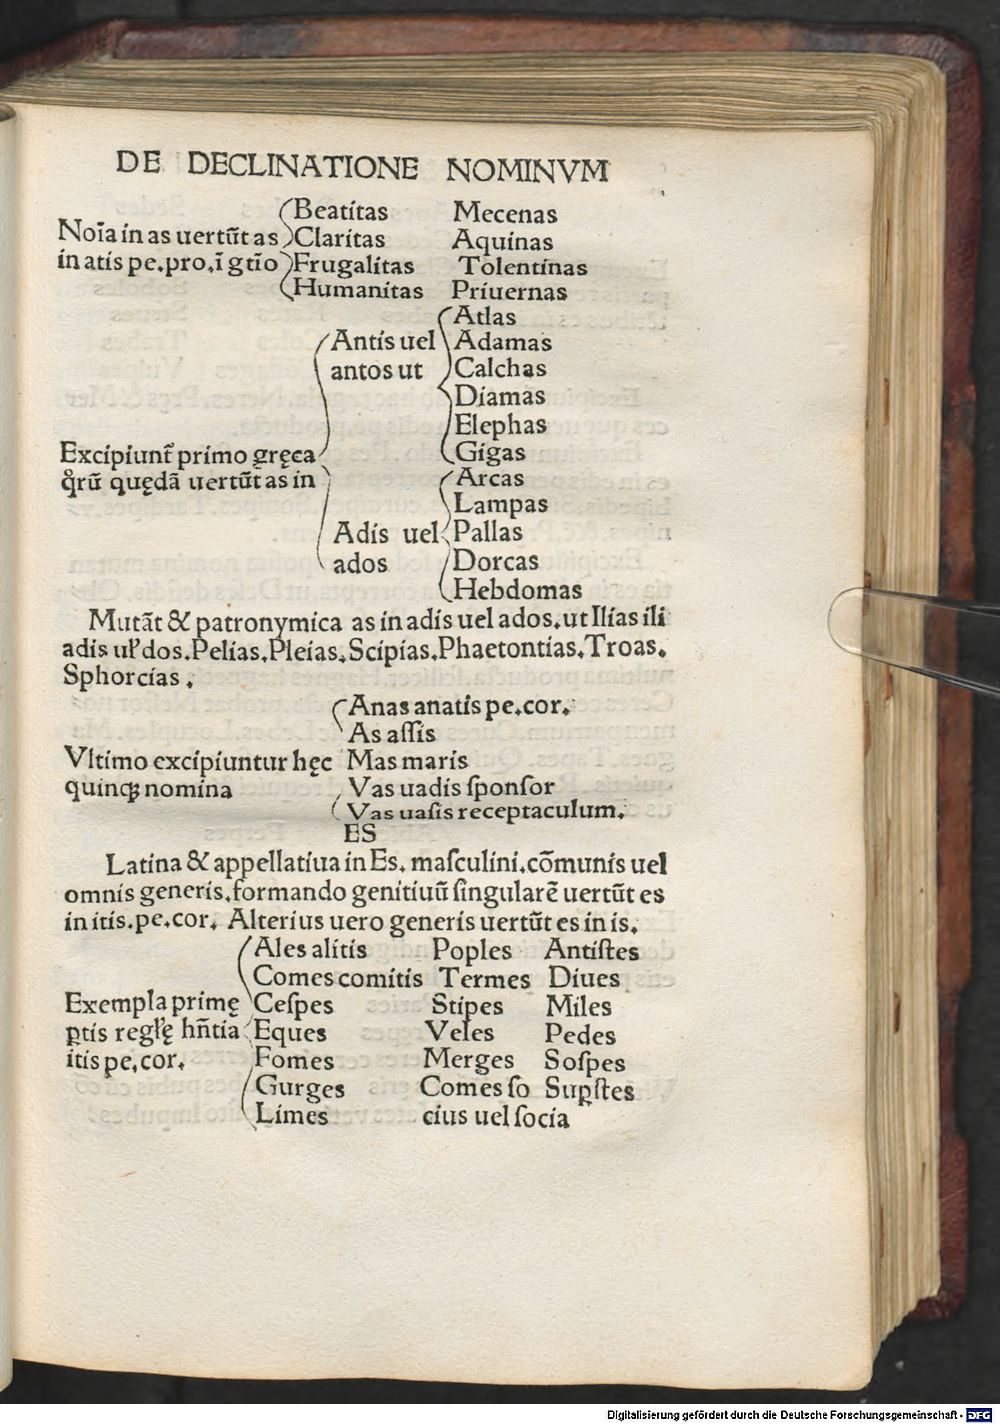 DE DECLINATIONE NOMINVM
Beatitas Mecenas
Noīa in as uertūt as Claritas Aquinas
in atis pe.pro.ī gtīo Frugalitas Tolentinas
Humanitas Priuernas
Atlas
Antis uel Adamas
antos ut Calchas
Diamas
Elephas
Excipiunt̄ primo gręca Gigas
q̊rū quędā uertūt as in Arcas
Lampas
Adis uel Pallas
ados Dorcas
Hebdomas
Mutāt & patronymica as in adis uel ados.ut Ilias ili
adis ul̓ dos.Pelias.Pleias.Scipias.Phaetontias.Troas.
Sphorcias.
Anas anatis pe.cor.
As aſſis
Vltimo excipiuntur hęc Mas maris
quinqꝫ nomina Vas uadis ſponſor
Vas uaſis receptaculum.
ES
Latina & appellatiua in Es. maſculini.cōmunis uel
omnis generis.formando genitiuū ſingularē uertūt es
in itis.pe.cor. Alterius uero generis uertūt es in is.
Ales alitis Poples Antiſtes
Comes comitis Termes Diues
Exempla primę Ceſpes Stipes Miles
ꝑtis regl̓ę hn̄tia Eques Veles Pedes
itis pe.cor. Fomes Merges Soſpes
Gurges Comes ſo Suꝑſtes
Limes cius uel ſocia
Digitalisierung gefördert durch die Deutsche Forschungsgemeinschaft - DFG